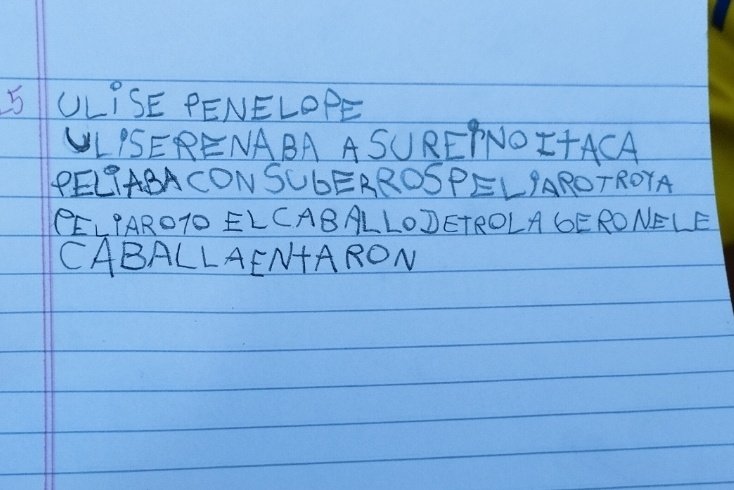 5
ULISE PENELOPE
ULISERENABA A SUREINO ITACA
PELIABA CON SUGERROS PELIARO TROYA
PELIAROTO EL CABALLODETROLA GERONELE
CABALLAENTARON